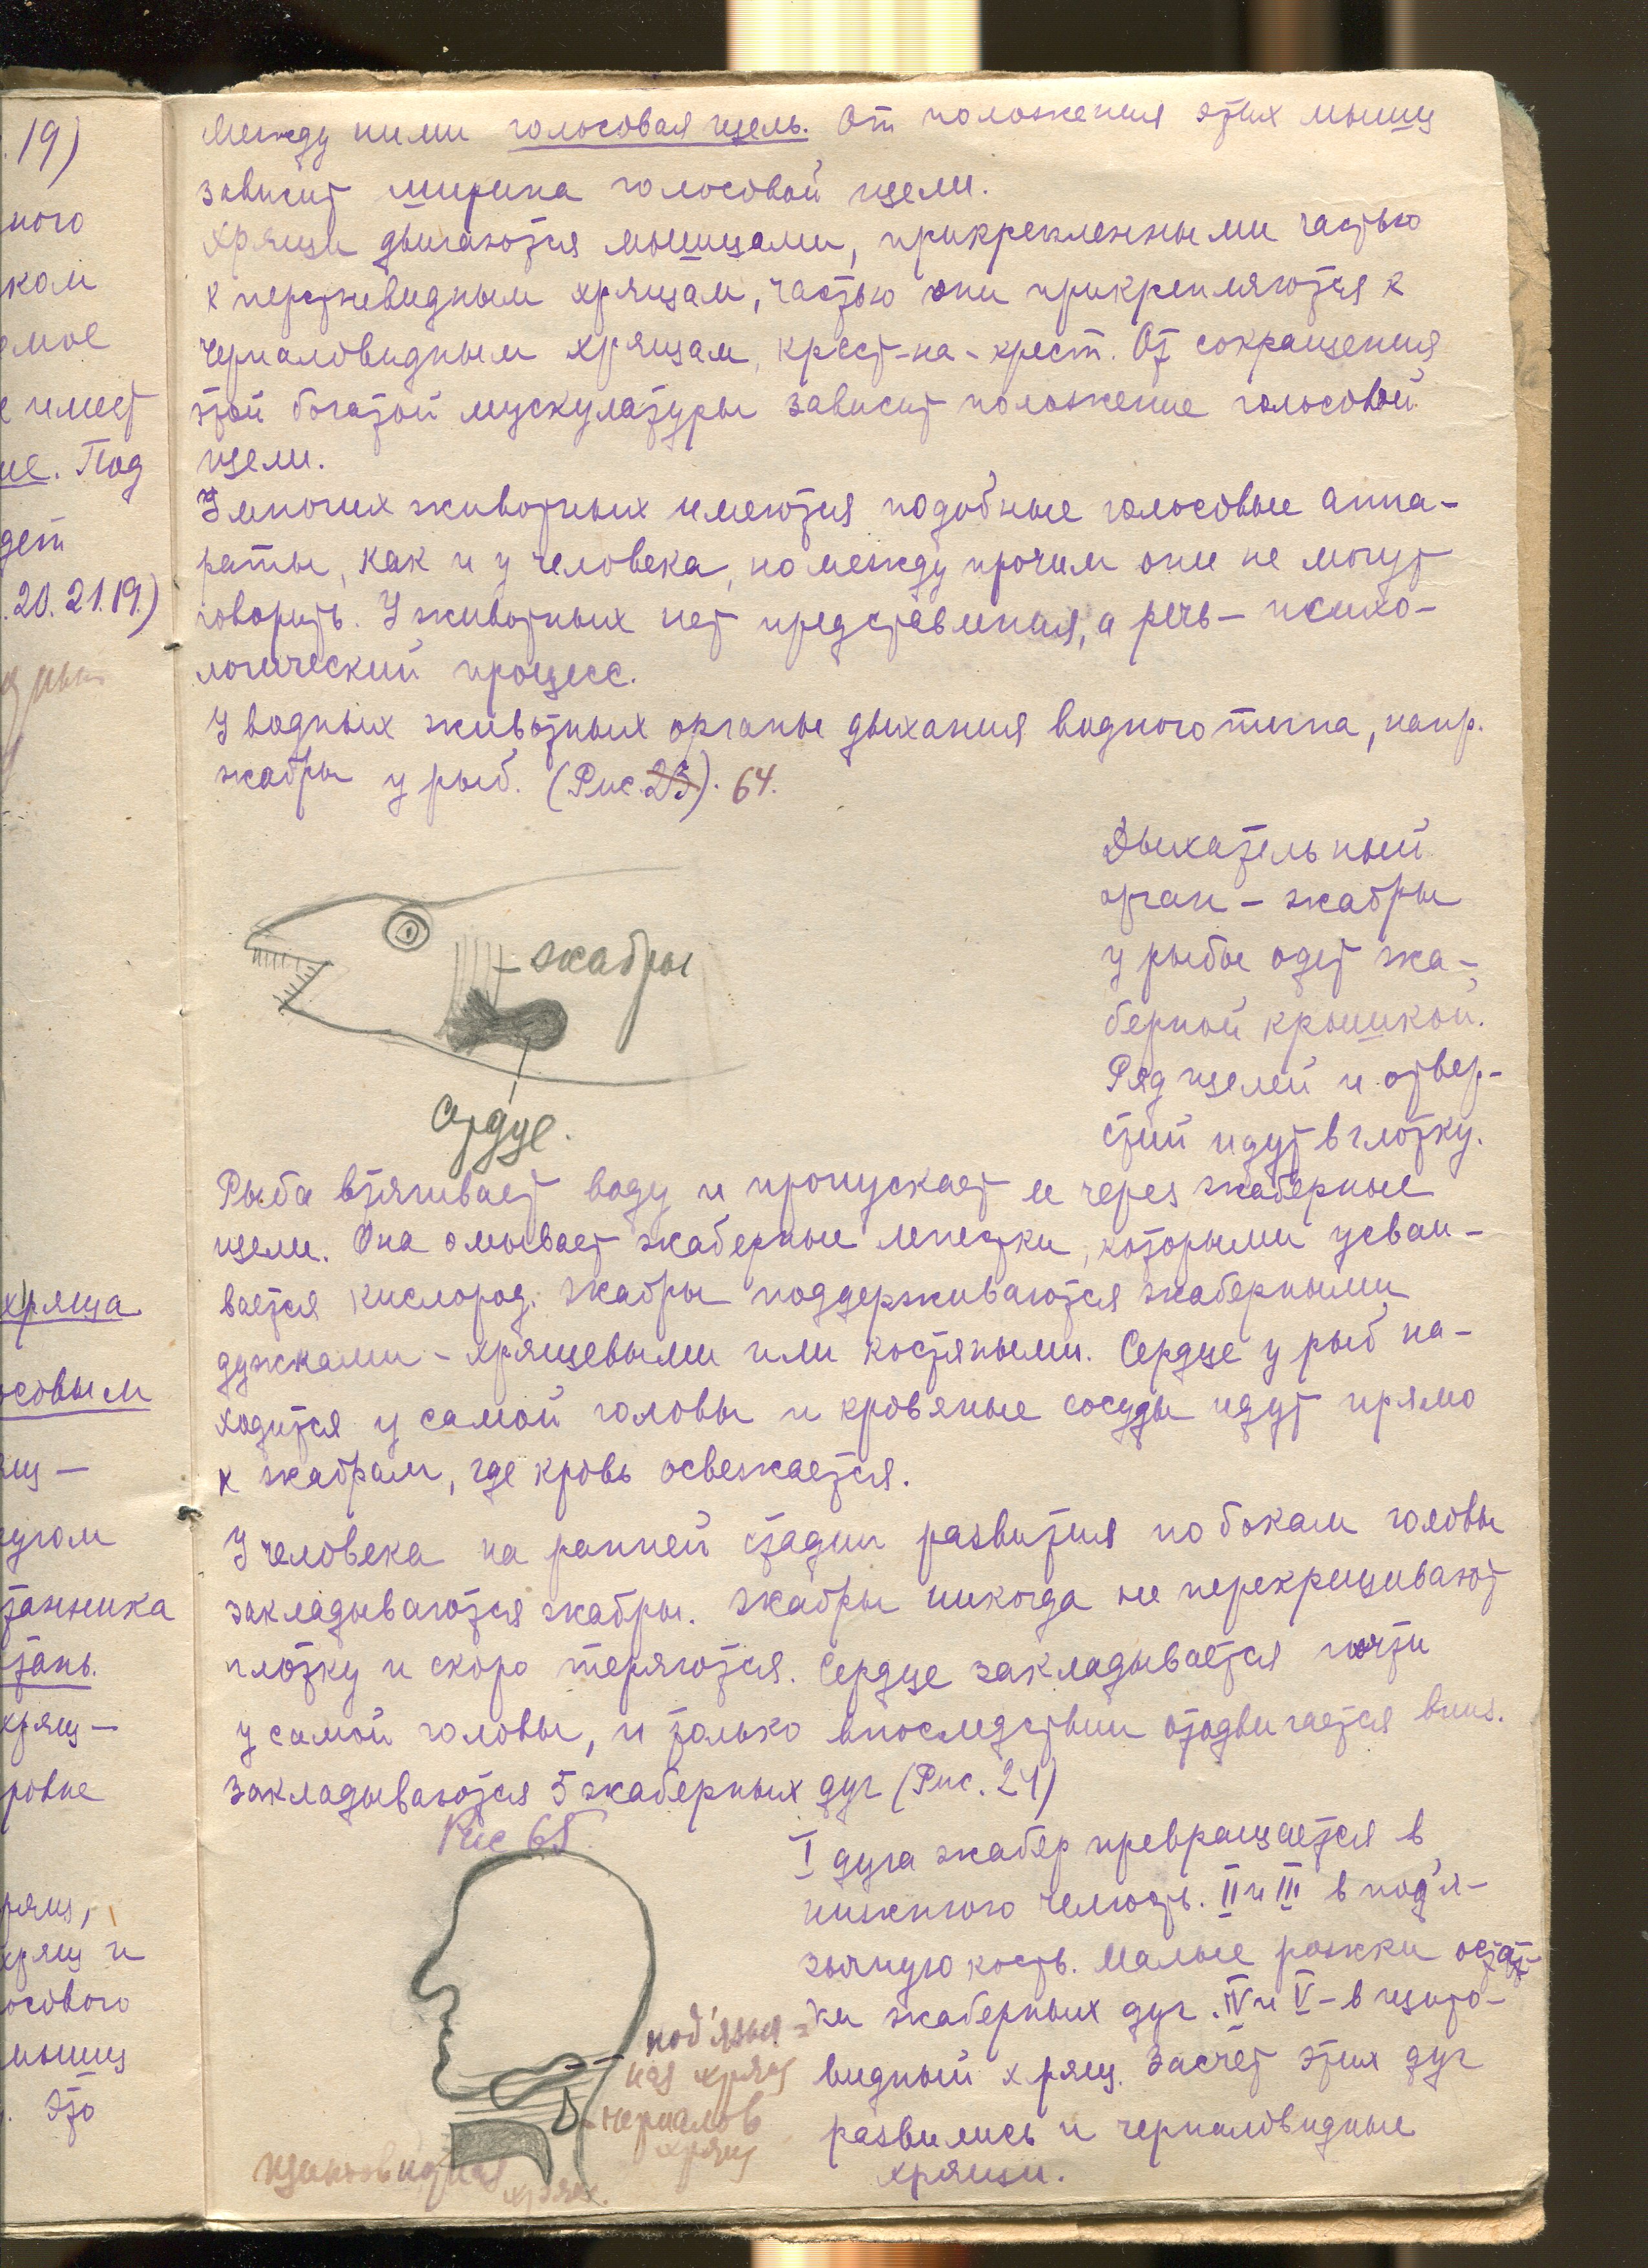 19)
ного
ком
имеет
ие. Под
дет
20. 21. 19.)
хряща
осовым
ящ-
ругом
танника
тань.
хрящ-
ровне
рящ,
хрящ и
осового
мышц
. Это
Между ними голосовая щель. От положения этих мышц
зависит ширина голосовой щели.
Хрящи двигаются мышцами, прикрепленными частью
к перстневидным хрящам, частью они прикрепляются к
черпаловидным хрящам, крест-на-крест. От сокращения
этой богатой мускулатуры зависит положение голосовой
щели.
У многих животных имеются подобные голосовые аппа-
раты, как и у человека, но между прочим они не могут
говорить. У животных нет представления, а речь - психо-
логический процесс.
У водных животных органы дыхания водного типа, напр.
жабры у рыб. (Рис. 23). 64.
Дыхательный
орган - жабры
у рыбы одет жа-
берной крышкой.
Ряд щелей и отвер-
стий идут в глотку.
жабры
сердце.
Рыба втягивает воду и пропускает ее через жаберные
щели. Она омывает жаберные лепестки, которыми усваи-
вается кислород. Жабры поддерживаются жаберными
дужками - хрящевыми или костяными. Сердце у рыб на-
ходится у самой головы и кровяные сосуды идут прямо
к жабрам, где кровь освежается.
У человека на ранней стадии развития по бокам головы
закладываются жабры. Жабры никогда не перекрещивают
глотку и скоро теряются. Сердце закладывается почти
у самой головы, и только впоследствии отодвигается вниз.
Закладываются 5 жаберных дуг (Рис. 24)
Рис 65
I дуга жабер превращается в
нижнюю челюсть. II и III в под'я-
зычную кость. Малые рожки остат-
ки жаберных дуг. IV и V - в щито-
видный хрящ. Засчет этих дуг
развились и черпаловидные
хрящи.
под'языч=
ная хрящ
черпалов
хрящ
щитовидная
хрящ.